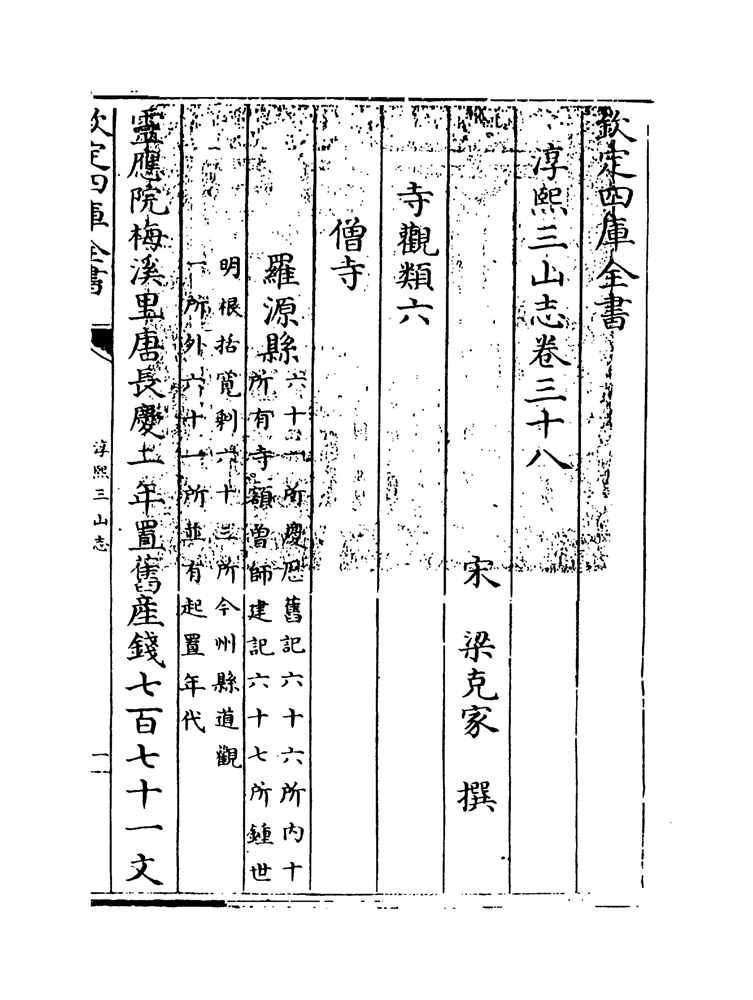 欽定四庫全書
淳熙三山志卷三十八
宋　梁克家　撰
寺觀類六
僧寺
羅源縣
六十一所慶厯舊記六十六所内十
所有寺額曾師建記六十七所鍾世
明根括寛剰六十三所今州縣道觀
一所外六十一所並有起置年代
靈應院梅溪里唐長慶二年置舊産錢七百七十一文
欽定四庫全書
淳熙三山志
一